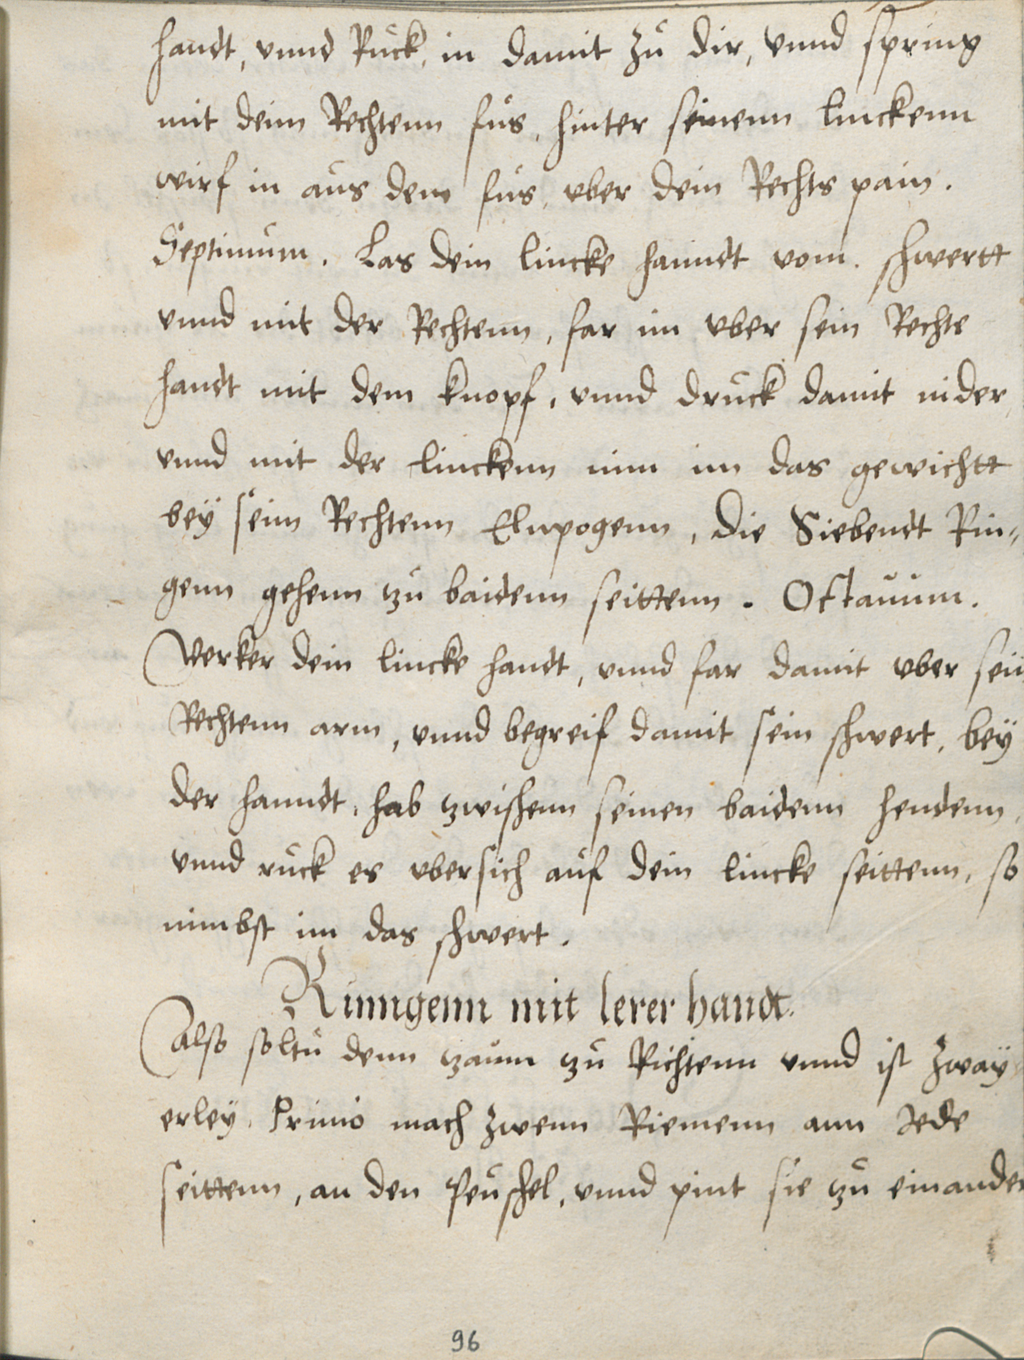 handt, vnnd Ruck, in damit zů dir, vnnd spring
mit deim Rechtenn fůs, hinter seinenn linckenn
wirf in aůs dem fůs, vber dein Rechts pain.
Septimům. Las dein lincke hanndt vom. schwertt
vnnd mit der Rechtenn, far im vber sein Rechte
handt mit dem knopf, vnnd drůck damit nider,
vnnd mit der linckenn nim im das gewichtt
bey seim Rechtenn Elnpogenn, die Siebendt Rin-
genn gehenn zů baidenn seittenn. Octauům.
Verker dein lincke handt, vnnd far damit vber sein
Rechtenn arm, vnnd begreif damit sein schwert, bey
der hanndt, hab zwischenn seinen baidenn hendenn,
vnnd růck es vbersich aůf dein lincke seittenn, so
nimbst im das schwert.
Rinngenn mit lerer handt.
Also soltů denn zaům zů Richtenn vnnd ist zway-
erley. Primo mach zwenn Riemenn ann Jede
seittenn, an den peůschel, vnnd pint sie zů einander
96